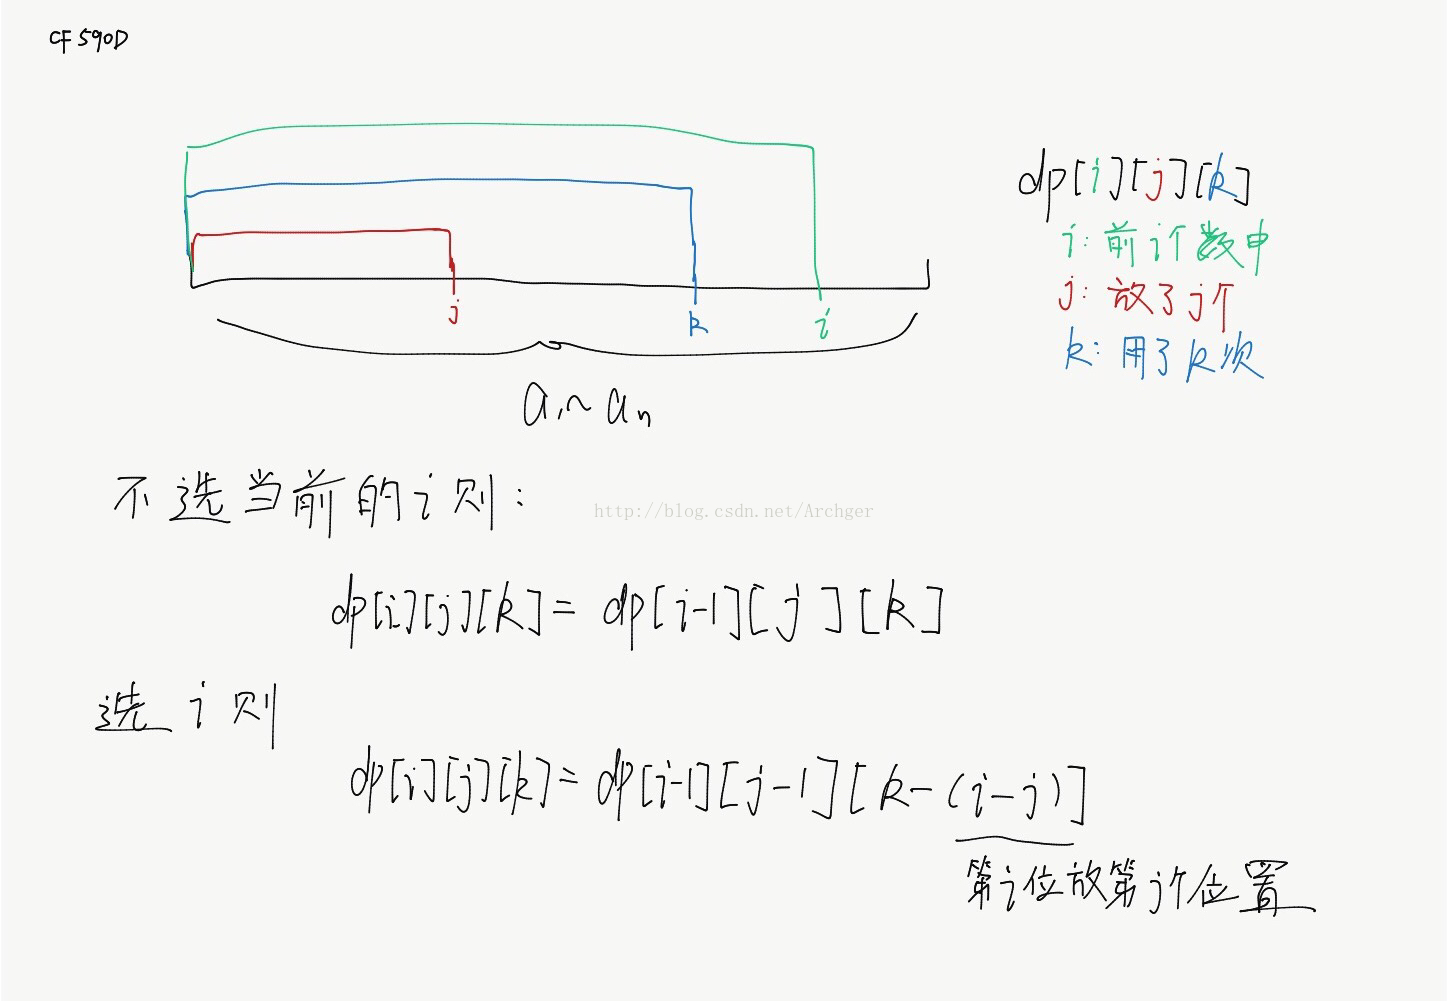 CF 590D
dp[i][j][k]
i: 前i个数中
j: 放了j个
k: 用了k次
j k i
a₁~aₙ
不选当前的i则:
http://blog.csdn.net/Archger
dp[i][j][k] = dp[i-1][j][k]
选i则
dp[i][j][k] = dp[i-1][j-1][k-(i-j)]
第i位放第j个位置